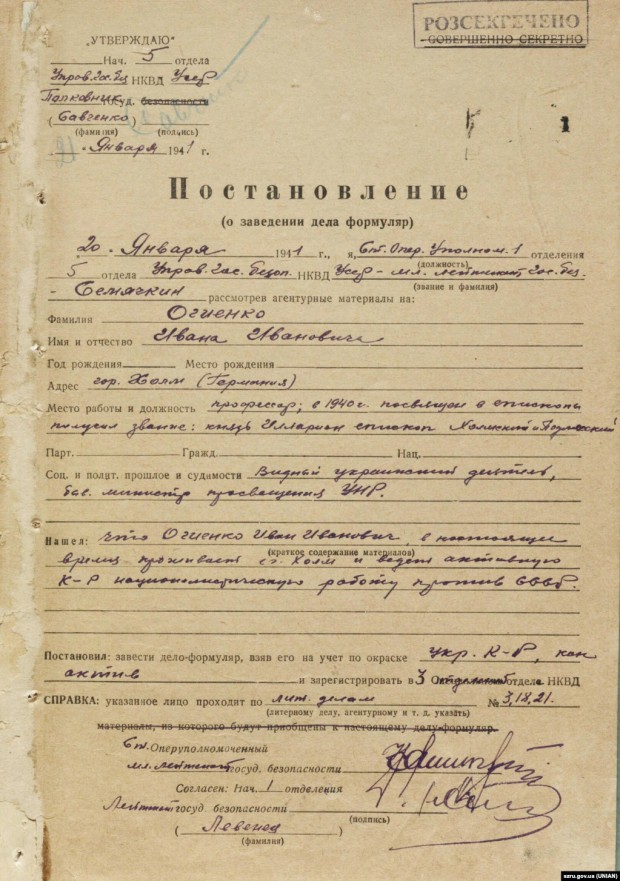 РОЗСЕКРЕЧЕНО
СОВЕРШЕННО СЕКРЕТНО
„УТВЕРЖДАЮ"
Нач. 5 отдела
Упров. Гос. Без НКВД Усср
Полковник Госуд. безопасности
(Савченко)
(фамилия) (подпись)
21 Января 1941 г.
1
Постановление
(о заведении дела формуляр)
20 Января 1941 г., я, Ст. Опер. Уполном. 1 отделения
(должность)
5 отдела Упров. Гос. Безоп. НКВД Усср - мл. лейтенант Гос. без.
(звание и фамилия)
рассмотрев агентурные материалы на:
Фамилия Огиенко
Имя и отчество Ивана Ивановича
Год рождения Место рождения
Адрес гор. Холм (Германия)
Место работы и должность профессор; в 1940 г. посвящен в епископы
получил звание: князь Илларион епископ Холмский и Подляский
Парт. Гражд. Нац.
Соц. и полит. прошлое и судимости Видный украинский деятель,
быв. министр просвещения УНР.
Нашел: что Огиенко Иван Иванович, в настоящее
(краткое содержание материалов)
время проживает в г. Холм и ведет активную
К-Р националистическую работу против СССР.
Постановил: завести дело-формуляр, взяв его на учет по окраске укр. К-Р, как
актив и зарегистрировать в 3 отдела НКВД
СПРАВКА: указанное лицо проходит по лит. делам № 3,18,21.
(литерному делу, агентурного и т. д. указать)
материалы, из которого будут приобщены к настоящему делу-формуляр.
Ст. Оперуполномоченный
мл. лейтенант госуд. безопасности
Согласен: Нач. 1 отделения
Лейтенант госуд. безопасности
(подпись)
(фамилия)
szru.gov.ua (UNIAN)